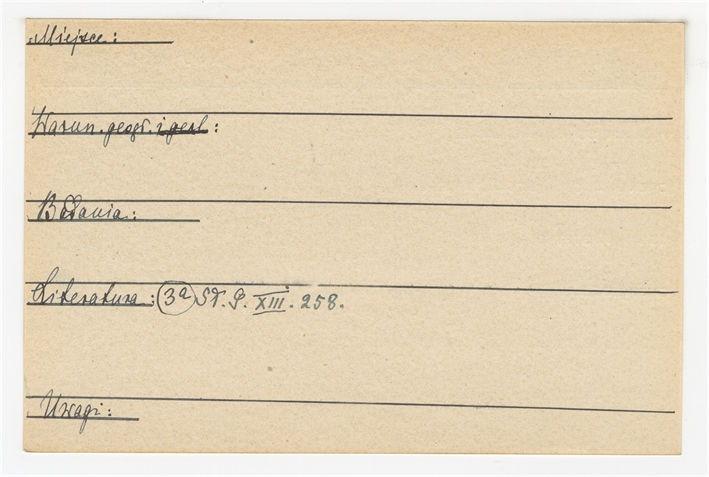 Miejsce:
Warun. geogr. i geol:
Badania:
Literatura: 3a St. G. XIII. 258.
Uwagi: